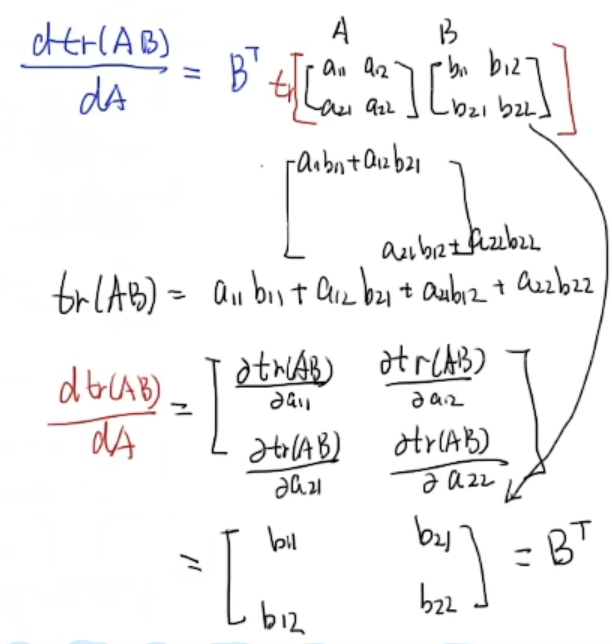 A B
dtr(AB)/dA = Bᵀ tr[[a11 a12; a21 a22] [b11 b12; b21 b22]]
[a11b11+a12b21
a21b12+a22b22]
tr(AB) = a11b11 + a12b21 + a21b12 + a22b22
dtr(AB)/dA = [∂tr(AB)/∂a11 ∂tr(AB)/∂a12
∂tr(AB)/∂a21 ∂tr(AB)/∂a22]
= [b11 b21
b12 b22] = Bᵀ